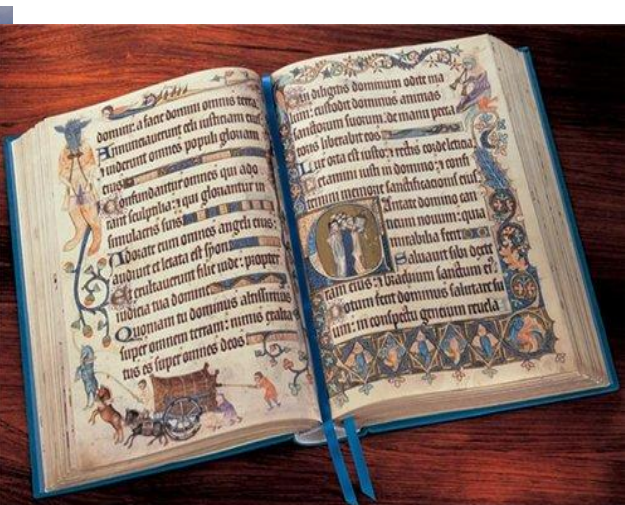 domini: a facie domini omnis terra.
Annunciaverunt celi iusticiam eius:
viderunt omnes populi gloriam
eius
Confundantur omnes qui ado
rant sculptilia: et qui gloriantur in
simulacris suis
Adorate eum omnes angeli eius:
audivit et letata est syon
Et exultaverunt filie iude: propter
iudicia tua domine
Quoniam tu dominus altissimus
super omnem terram: nimis exalta
tus es super omnes deos
Qui diligitis dominum odite ma
lum: custodit dominus animas
sanctorum suorum: de manu pecca
toris liberabit eos
Lux orta est iusto: et rectis corde leticia
Letamini iusti in domino: et confi
temini memorie sanctificacionis eius
Cantate domino can
ticum novum: quia
mirabilia fecit
Salvavit sibi dexte
ram eius: et brachium sanctum eius
Notum fecit dominus salutare su
um: in conspectu gencium revela